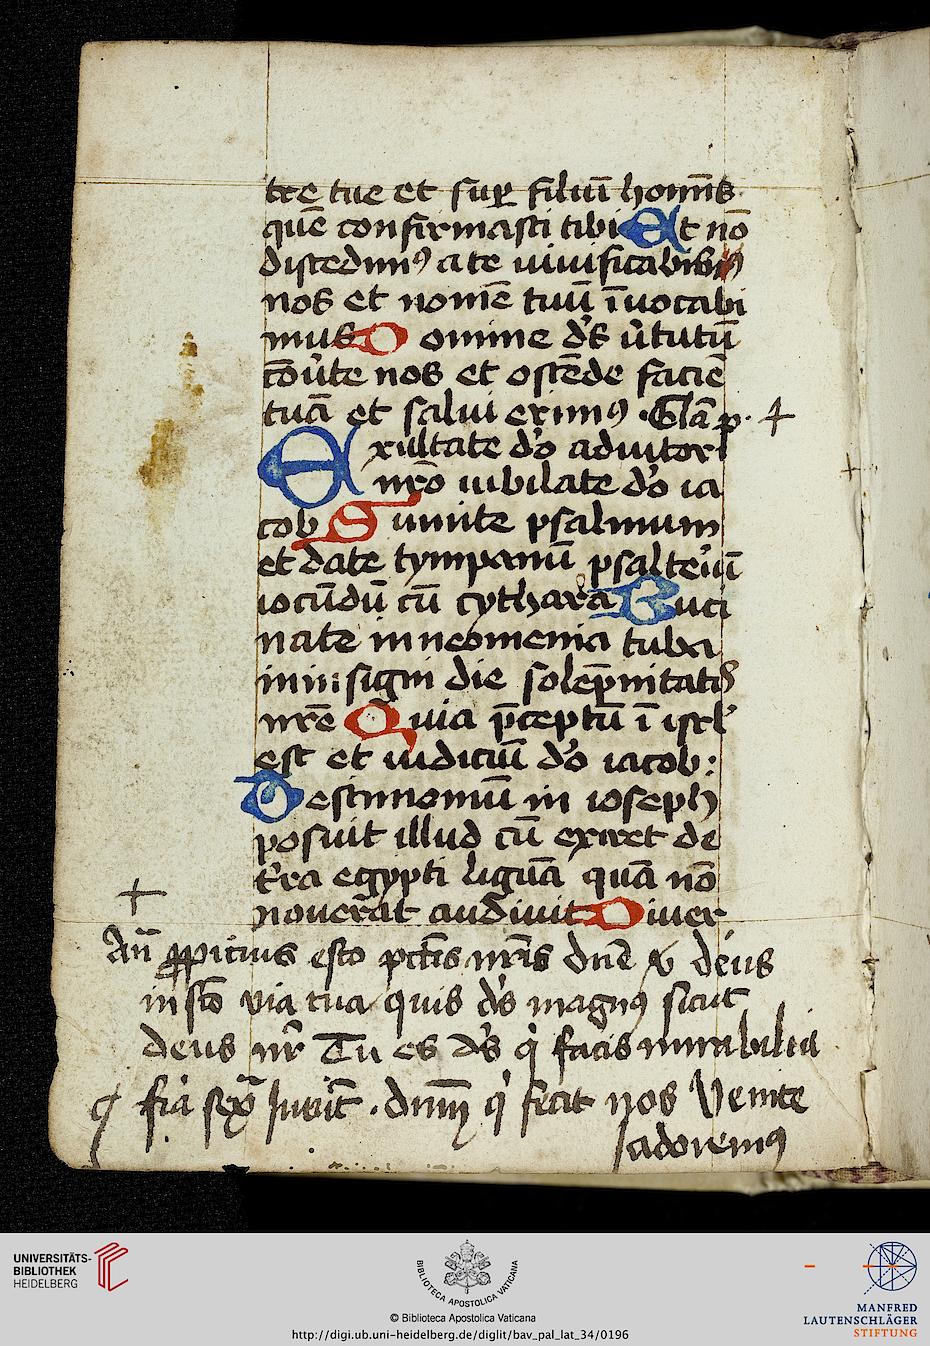 tre tue et sup̱ filiū hom̄is
quē confirmasti tibi Et nō
discedim⁹ a te viuificabis
nos et nomē tuū īuocabi
mus Domine d̄s v̓tutū
cōu̓te nos et ostēde faciē
tuā et salui erim⁹ . Gl̄a p̱. +
Exultate d̓o adiutori
nr̄o iubilate d̓o ia
cob Sumite psalmum
et date tympanū psalte̓iū
iocūdū cū cythara Buci
nate in neomenia tuba
in insigni die solēp̄nitatis
nr̄e Quia p̄ceptū ī isrl̓
est et iudiciū d̓o iacob:
Testimoniū in ioseph
posuit illud cū exiret de
t̓ra egypti liguā quā nō
nouerat audiuit Diuer
+
An̄ ꝓpicius esto pctīs nr̄is dn̄e
deus
in sc̄o via tua quis d̓s magn⁹ sicut
deus nr̄ Tu es d̓s q̓ facis mirabilia
fr̓ia sexᵃ Inuit̄ . dnm̄ q̓ fecit nos Venite
adorem⁹
UNIVERSITÄTS-
BIBLIOTHEK
HEIDELBERG
BIBLIOTECA APOSTOLICA VATICANA
© Biblioteca Apostolica Vaticana
http://digi.ub.uni-heidelberg.de/diglit/bav_pal_lat_34/0196
MANFRED
LAUTENSCHLÄGER
STIFTUNG